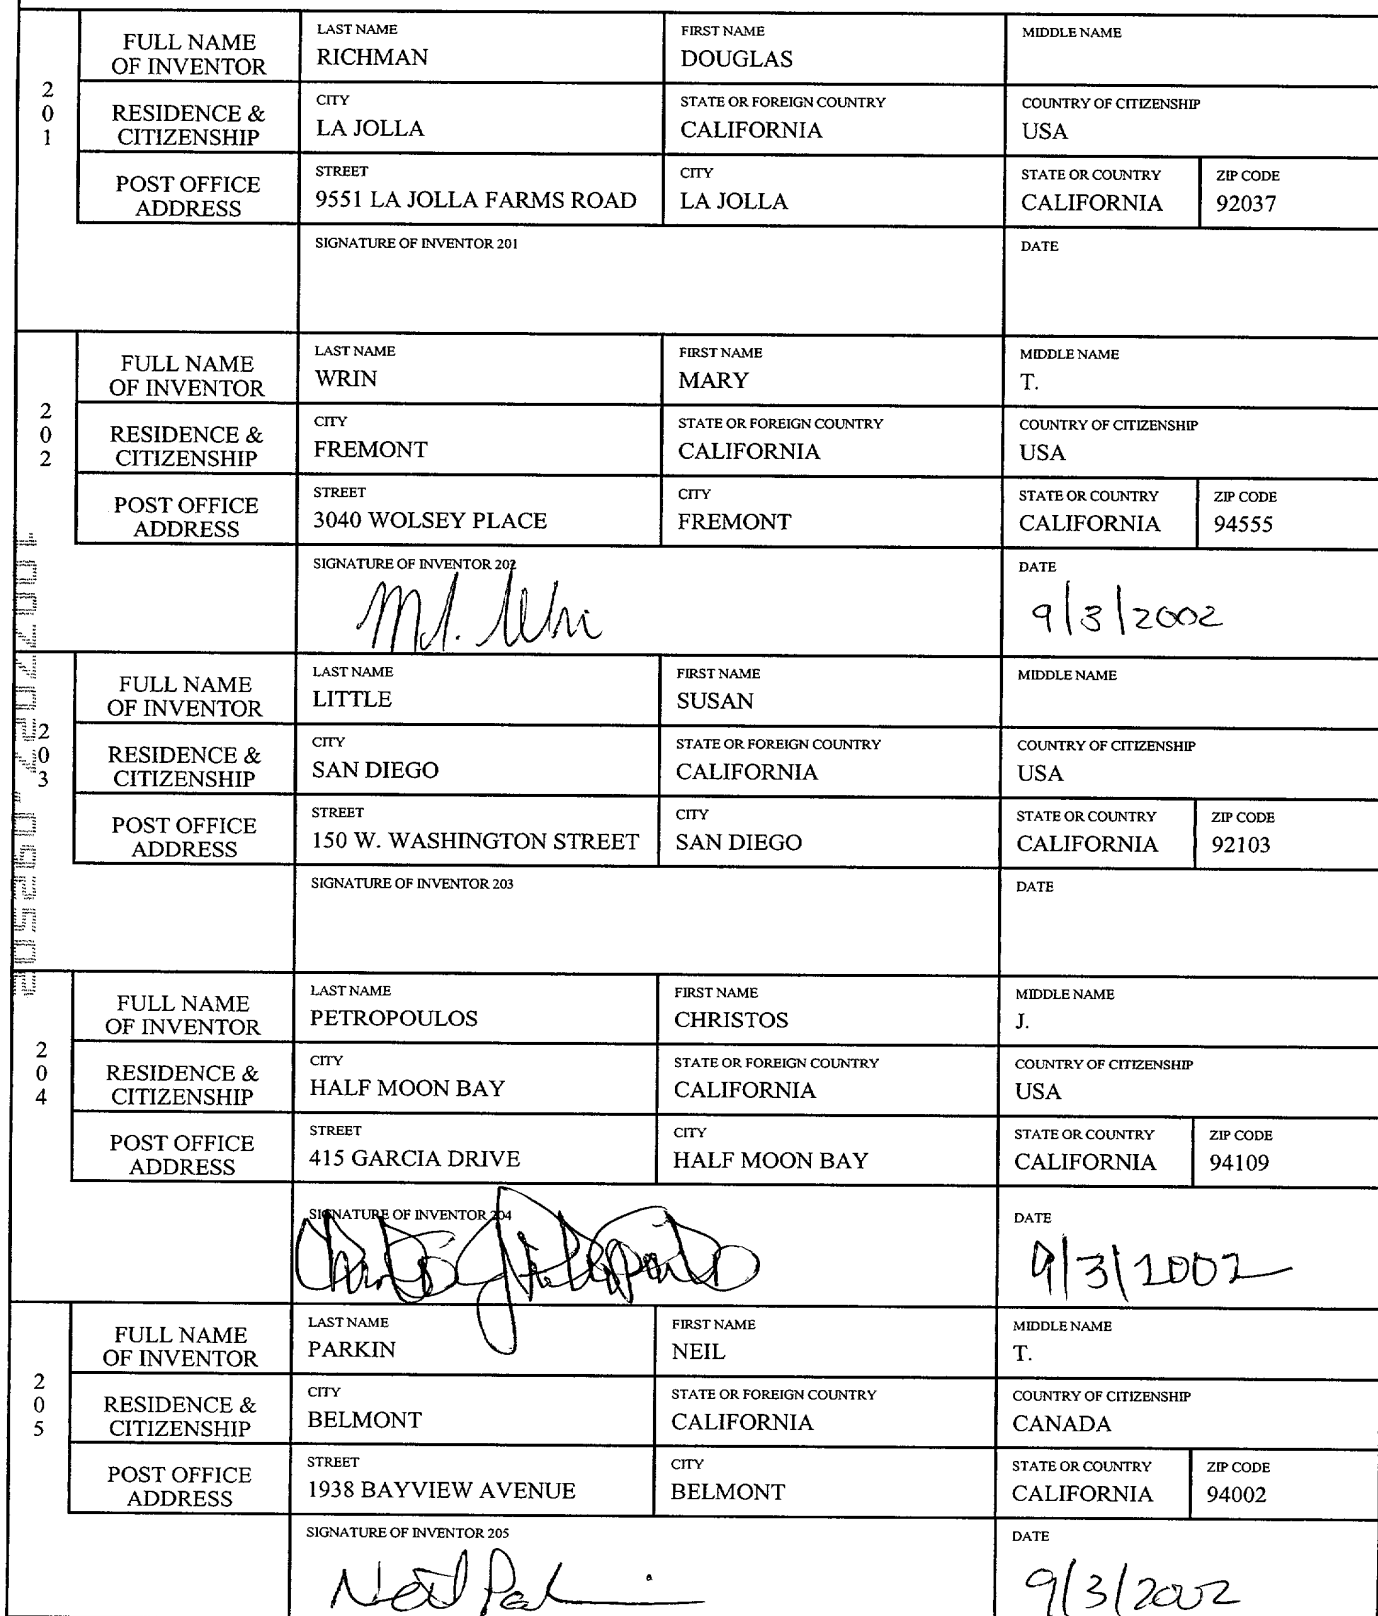 201
FULL NAME OF INVENTOR
LAST NAME RICHMAN
FIRST NAME DOUGLAS
MIDDLE NAME
RESIDENCE & CITIZENSHIP
CITY LA JOLLA
STATE OR FOREIGN COUNTRY CALIFORNIA
COUNTRY OF CITIZENSHIP USA
POST OFFICE ADDRESS
STREET 9551 LA JOLLA FARMS ROAD
CITY LA JOLLA
STATE OR COUNTRY CALIFORNIA
ZIP CODE 92037
SIGNATURE OF INVENTOR 201
DATE
202
FULL NAME OF INVENTOR
LAST NAME WRIN
FIRST NAME MARY
MIDDLE NAME T.
RESIDENCE & CITIZENSHIP
CITY FREMONT
STATE OR FOREIGN COUNTRY CALIFORNIA
COUNTRY OF CITIZENSHIP USA
POST OFFICE ADDRESS
STREET 3040 WOLSEY PLACE
CITY FREMONT
STATE OR COUNTRY CALIFORNIA
ZIP CODE 94555
SIGNATURE OF INVENTOR 202
DATE 9/3/2002
203
FULL NAME OF INVENTOR
LAST NAME LITTLE
FIRST NAME SUSAN
MIDDLE NAME
RESIDENCE & CITIZENSHIP
CITY SAN DIEGO
STATE OR FOREIGN COUNTRY CALIFORNIA
COUNTRY OF CITIZENSHIP USA
POST OFFICE ADDRESS
STREET 150 W. WASHINGTON STREET
CITY SAN DIEGO
STATE OR COUNTRY CALIFORNIA
ZIP CODE 92103
SIGNATURE OF INVENTOR 203
DATE
204
FULL NAME OF INVENTOR
LAST NAME PETROPOULOS
FIRST NAME CHRISTOS
MIDDLE NAME J.
RESIDENCE & CITIZENSHIP
CITY HALF MOON BAY
STATE OR FOREIGN COUNTRY CALIFORNIA
COUNTRY OF CITIZENSHIP USA
POST OFFICE ADDRESS
STREET 415 GARCIA DRIVE
CITY HALF MOON BAY
STATE OR COUNTRY CALIFORNIA
ZIP CODE 94109
SIGNATURE OF INVENTOR 204
DATE 9/3/2002
205
FULL NAME OF INVENTOR
LAST NAME PARKIN
FIRST NAME NEIL
MIDDLE NAME T.
RESIDENCE & CITIZENSHIP
CITY BELMONT
STATE OR FOREIGN COUNTRY CALIFORNIA
COUNTRY OF CITIZENSHIP CANADA
POST OFFICE ADDRESS
STREET 1938 BAYVIEW AVENUE
CITY BELMONT
STATE OR COUNTRY CALIFORNIA
ZIP CODE 94002
SIGNATURE OF INVENTOR 205
DATE 9/3/2002